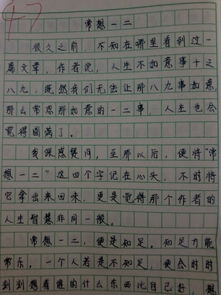 47
常想一二
很久之前，不知在哪里看到过一
篇文章，作者说，人生不如意事十之
八九，既然我们无法让那八九事如意，
那么常思那如意的一二事，人生也会
觉得圆满了。
我深感赞同，至那以后，便将“常
想一二”这四个字记在心头，不时将
它拿出来回味，更是觉得那个作者的
人生智慧非同一般。
常想一二，便是知足，知足方能
常乐，一个人若是不知足，便会时时
刻刻想着谁的什么东西比自己好，